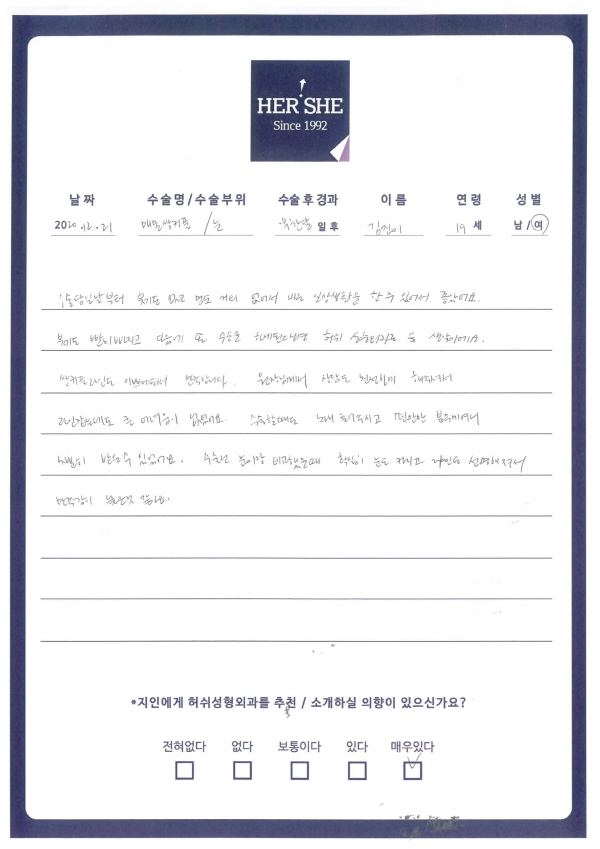 HER SHE
Since 1992
날짜 수술명/수술부위 수술 후 경과 이름 연령 성별
2020.12.21 매몰쌍커풀 / 눈 일 후 김진이 19 세 남/여
당일날부터 붓기도 없고 멍도 거의 없어서 바로 일상생활을 할 수 있어서 좋았어요.
붓기도 빨리빠지고 다음에 또 수술을 하게된다면 허쉬 성형외과로 올 생각이에요.
쌍커풀라인도 이쁘게되서 만족합니다. 원장님께서 상담도 친절하게 해주셔서
라인잡는데도 큰 어려움이 없었어요. 수술할때도 노래 틀어주시고 편안한 분위기에서
받을수 있었어요. 수술전 눈이랑 비교했을때 확실히 눈도 커지고 라인도 선명해져서
만족감이 높은것 같아요.
*지인에게 허쉬성형외과를 추천 / 소개하실 의향이 있으신가요?
전혀없다 없다 보통이다 있다 매우있다